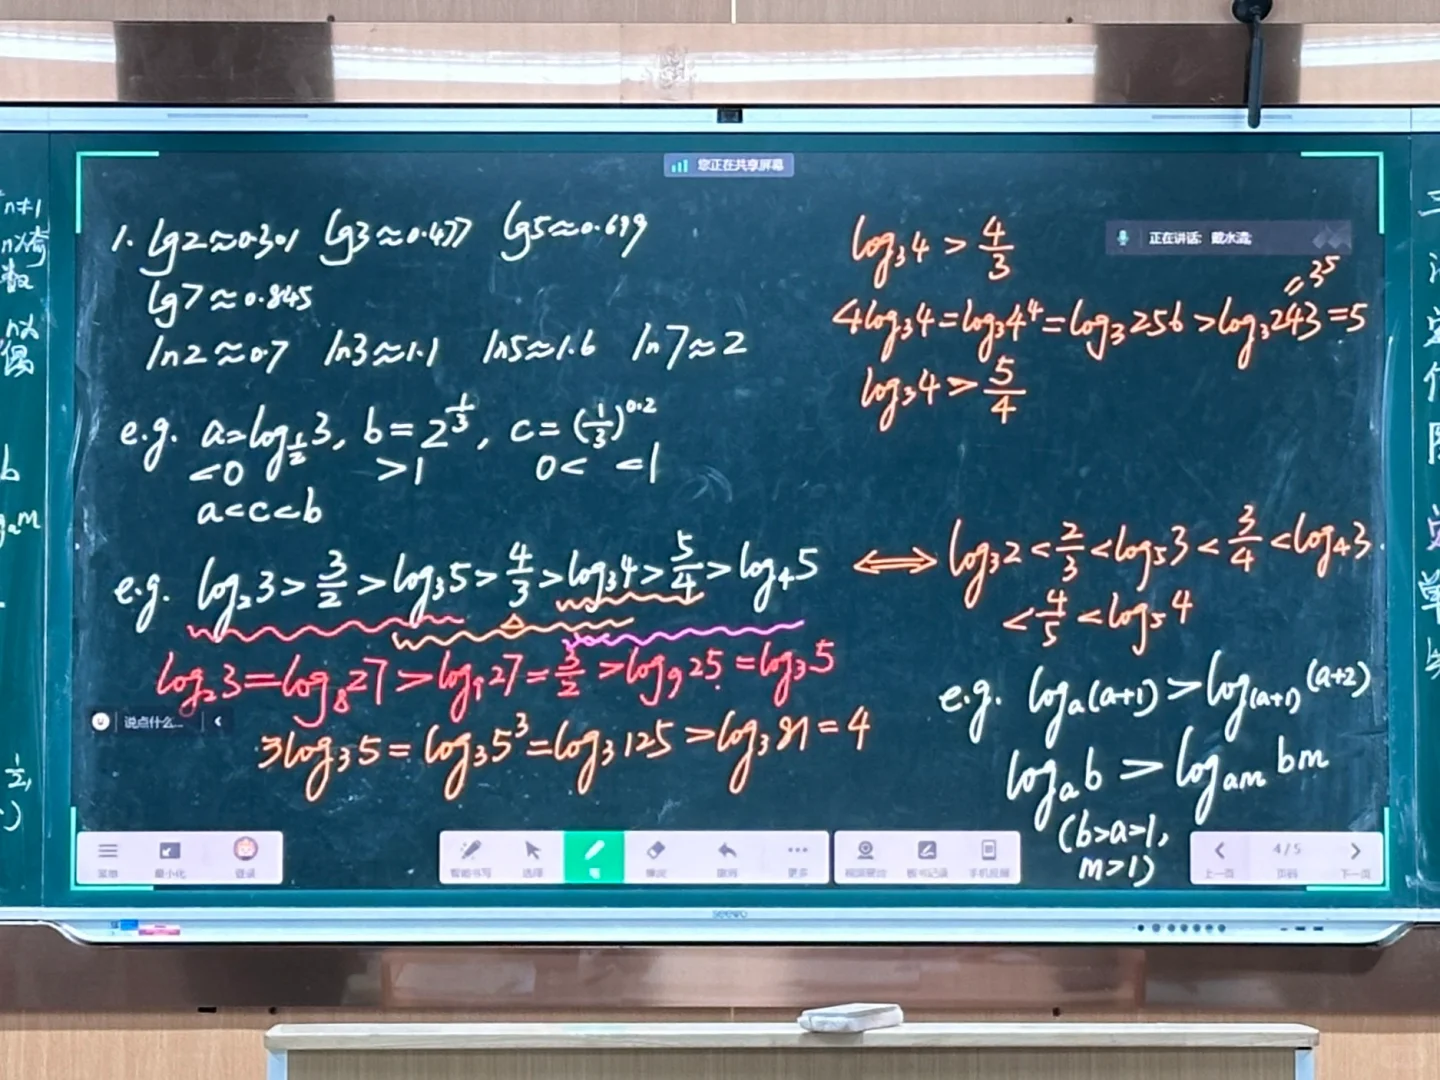 您正在共享屏幕
正在讲话: 戴水滴;
1. lg2≈0.301 lg3≈0.477 lg5≈0.699
lg7≈0.845
ln2≈0.7 ln3≈1.1 ln5≈1.6 ln7≈2
e.g. a=log_{1/2}3, b=2^{1/3}, c=(1/3)^{0.2}
<0 >1 0< <1
a<c<b
e.g. log₂3>3/2>log₃5>4/3>log₃4>5/4>log₄5
log₂3=log₈27>log₉27=3/2>log₉25=log₃5
3log₃5=log₃5³=log₃125>log₃81=4
log₃4>4/3
=3⁵
4log₃4=log₃4⁴=log₃256>log₃243=5
log₃4>5/4
⟺ log₃2<2/3<log₅3<3/4<log₄3.
<4/5<log₅4
e.g. logₐ(a+1)>log₍ₐ₊₁₎(a+2)
logₐb>log_{am}bm
(b>a>1,
m>1)
说点什么...
菜单 最小化 登录
智能书写 选择 笔 擦除 撤消 更多
视频展台 板书记录 手机投屏
上一页 4/5 页码 下一页
seewo
n≠1
n为奇
数
n为
偶
b
1/2,